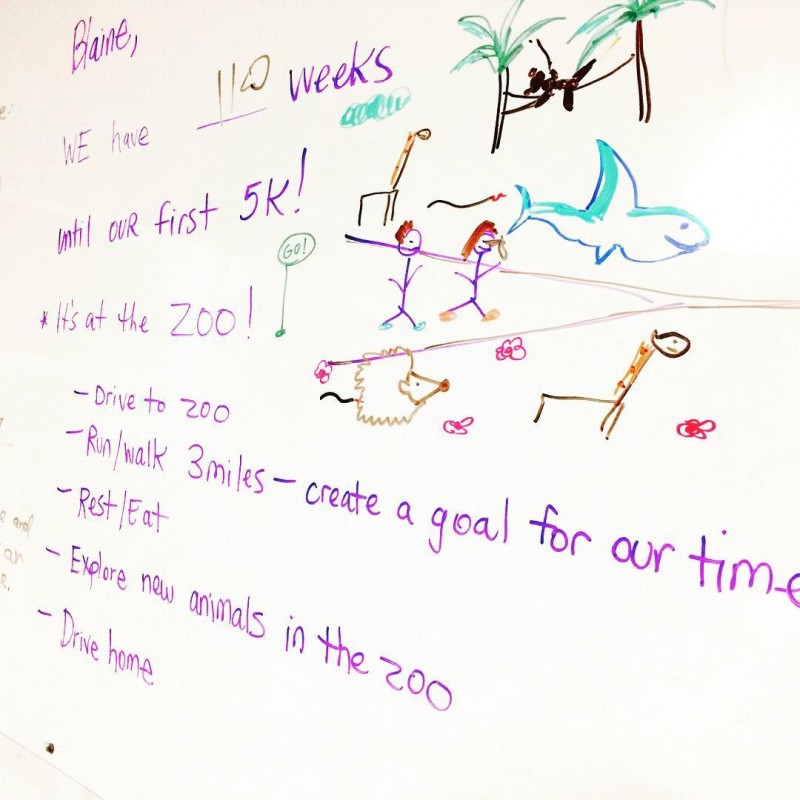 Blaine,
WE have weeks
until OUR first 5K!
GO!
* It's at the ZOO!
- Drive to zoo
- Run/walk 3miles - create a goal for our time
- Rest/Eat
- Explore new animals in the zoo
- Drive home